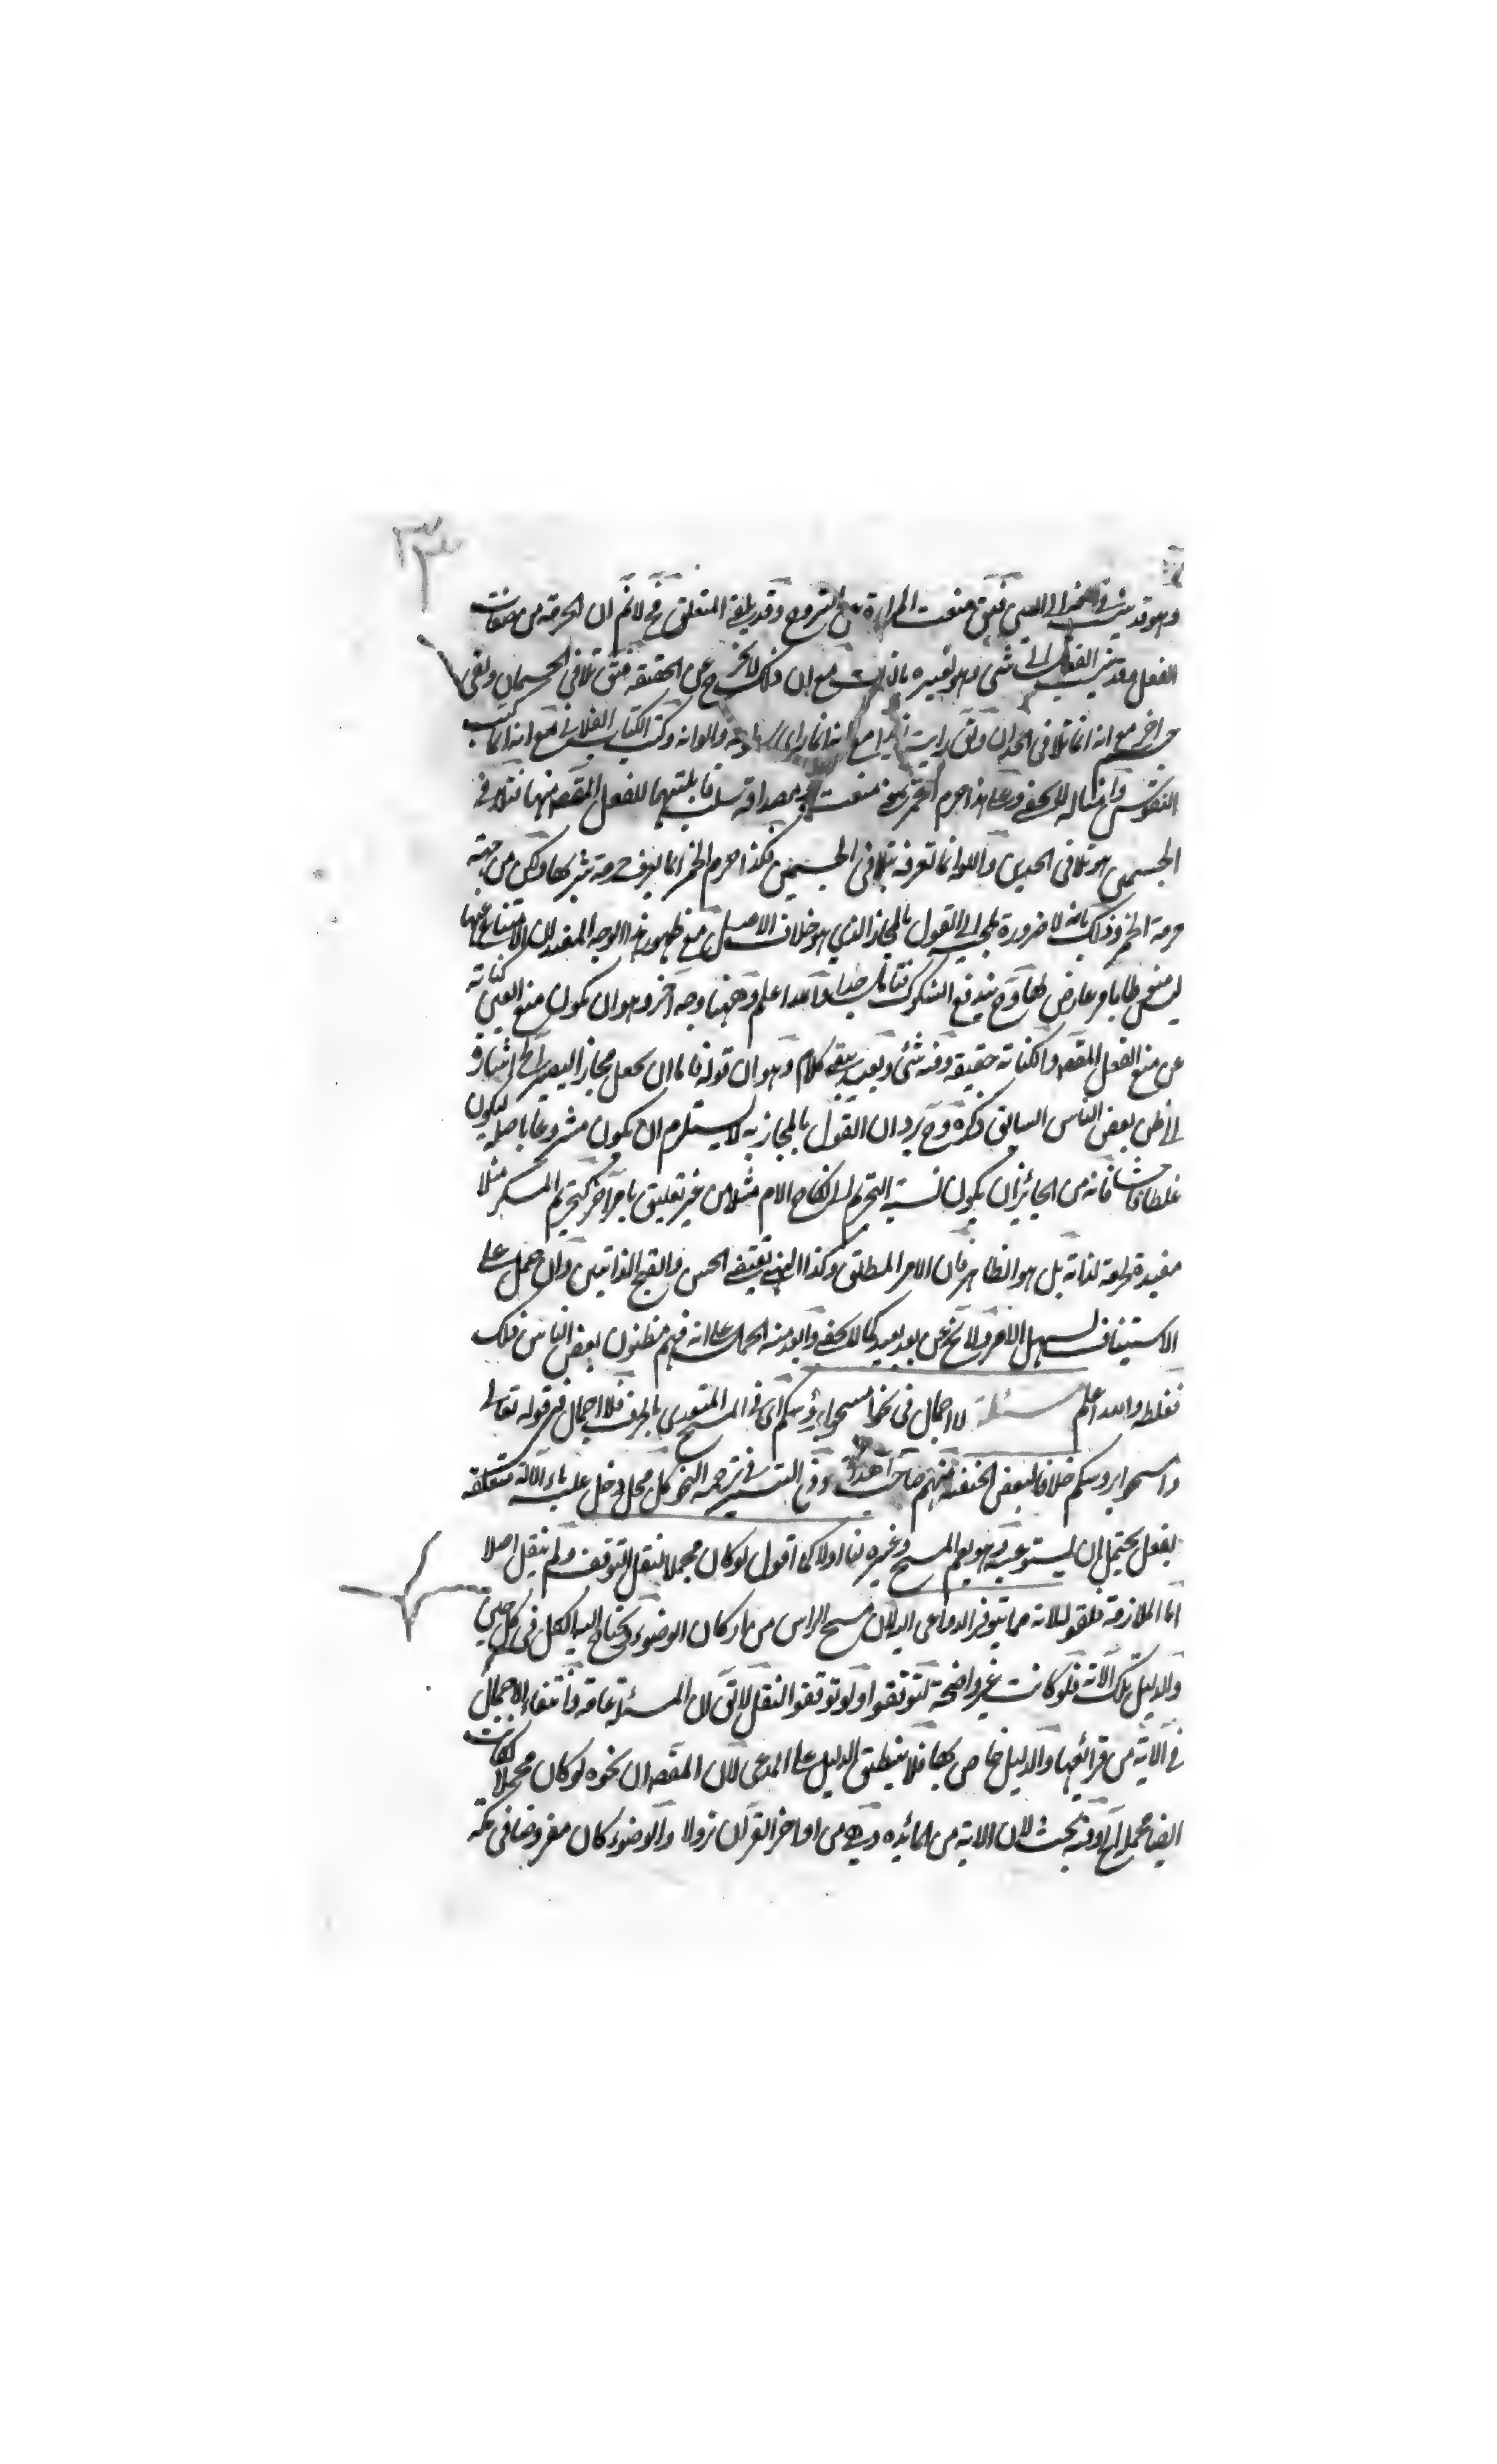 ٣٣
وهو قد ينسب في الى العين فيق منعت المراءة عن الشروع وقد يلغو المتعلق فح لانم ان الحرمة من صفات
الفعل وقد ينسب الفعل الى شئ وهو لغيره بالذات مع ان ذلك لا يخرج عن الحقيقة فيق تلاقي الجسمان ولقى
مع انه انما تلاقى الحدان ويق رايت زيدا مع انه انما راى والوانه وكتب الكتاب الفلاني مع انه انما كتب
النقوش وامثاله لا يخفى وعلى هذا حرم الخمر منعت ومصداقه سلب قابليتهما للفعل المقصود منها فتلاقي
الجسمين هو تلاقى الحدين واللوانما تعرفه بتلاقى الجسمين فكذا حرم الخمر انما يعرف حرمة شربها ولكن من جهة
حرمة الخمر وذلك بانه لا ضرورة تلجئ الى القول بالمجاز الذي هو خلاف الاصل مع ظهور هذا الوجه المفيد لان الامتناع عنها
ليس لها وح يندفع الشكوك فتامل جدا والله اعلم وههنا وجه آخر وهو ان يكون منع العين كناية
عن منع الفعل المقصود والكناية حقيقة وفيه شئ وبعد بقي كلام وهو ان قوله فاما ان يجعل مجازا ليصير الخ اشارة
الى ظن بعض الناس السابق ذكره وح يرد ان القول بالمجازية لا يستلزم ان يكون مشروعا باصله ليكون
غلطا فاحشا فانه من الجائز ان يكون نسبة التحريم الى نكاح الام مثلا من غير تعليق بامر آخر كتحريم المسكر مثلا
مفيدة لحرمة لذاته بل هو الظاهر فان الامر المطلق وكذا النهي يقتضي الحسن والقبح الذاتيين وان حمل على
الاستيناف لسهل الامر ولا يخ عن بعد بعيد كما لا يخفى وابعد منه الحمل على انه فهم مظنون بعض الناس ذلك
فغلطه والله اعلم مسئلة لا اجمال في نحو امسحوا برؤسكم اى في المسح المتعدى بالحرف فلا اجمال في قوله تعالى
وامسحوا بروسكم خلافا لبعض الحنفية منهم صاحب الهداية وفي التيسير في ترجمة النحو كل محل دخل عليه باء الالة متعلقة
بفعل يحتمل ان يستوعبه وهو يعم المسح وغيره لنا اولا كما اقول لو كان مجملا لنقل التوقف ولم ينقل اصلا
اما الملازمة فلقوله لانه مما يتوفر الدواعى اليه لان مسح الراس من اركان الوضوء ويحتاج اليه الكل في كل حين
والدليل تلك الاية فلو كانت غير واضحة لتوقفوا ولو توقفوا لنقل لا يق لان المسئلة عامة وانتفاء الاجمال
في الآية من قرائنها والدليل خاص بها فلا ينطبق الدليل على المدعى لان المقصود ان نحوه لو كان مجملا لكانت
ايضا مجملة الخ وفيه بحث لان الاية من المائدة وهى من اواخر القران نزولا والوضوء كان مفروضا في مكة